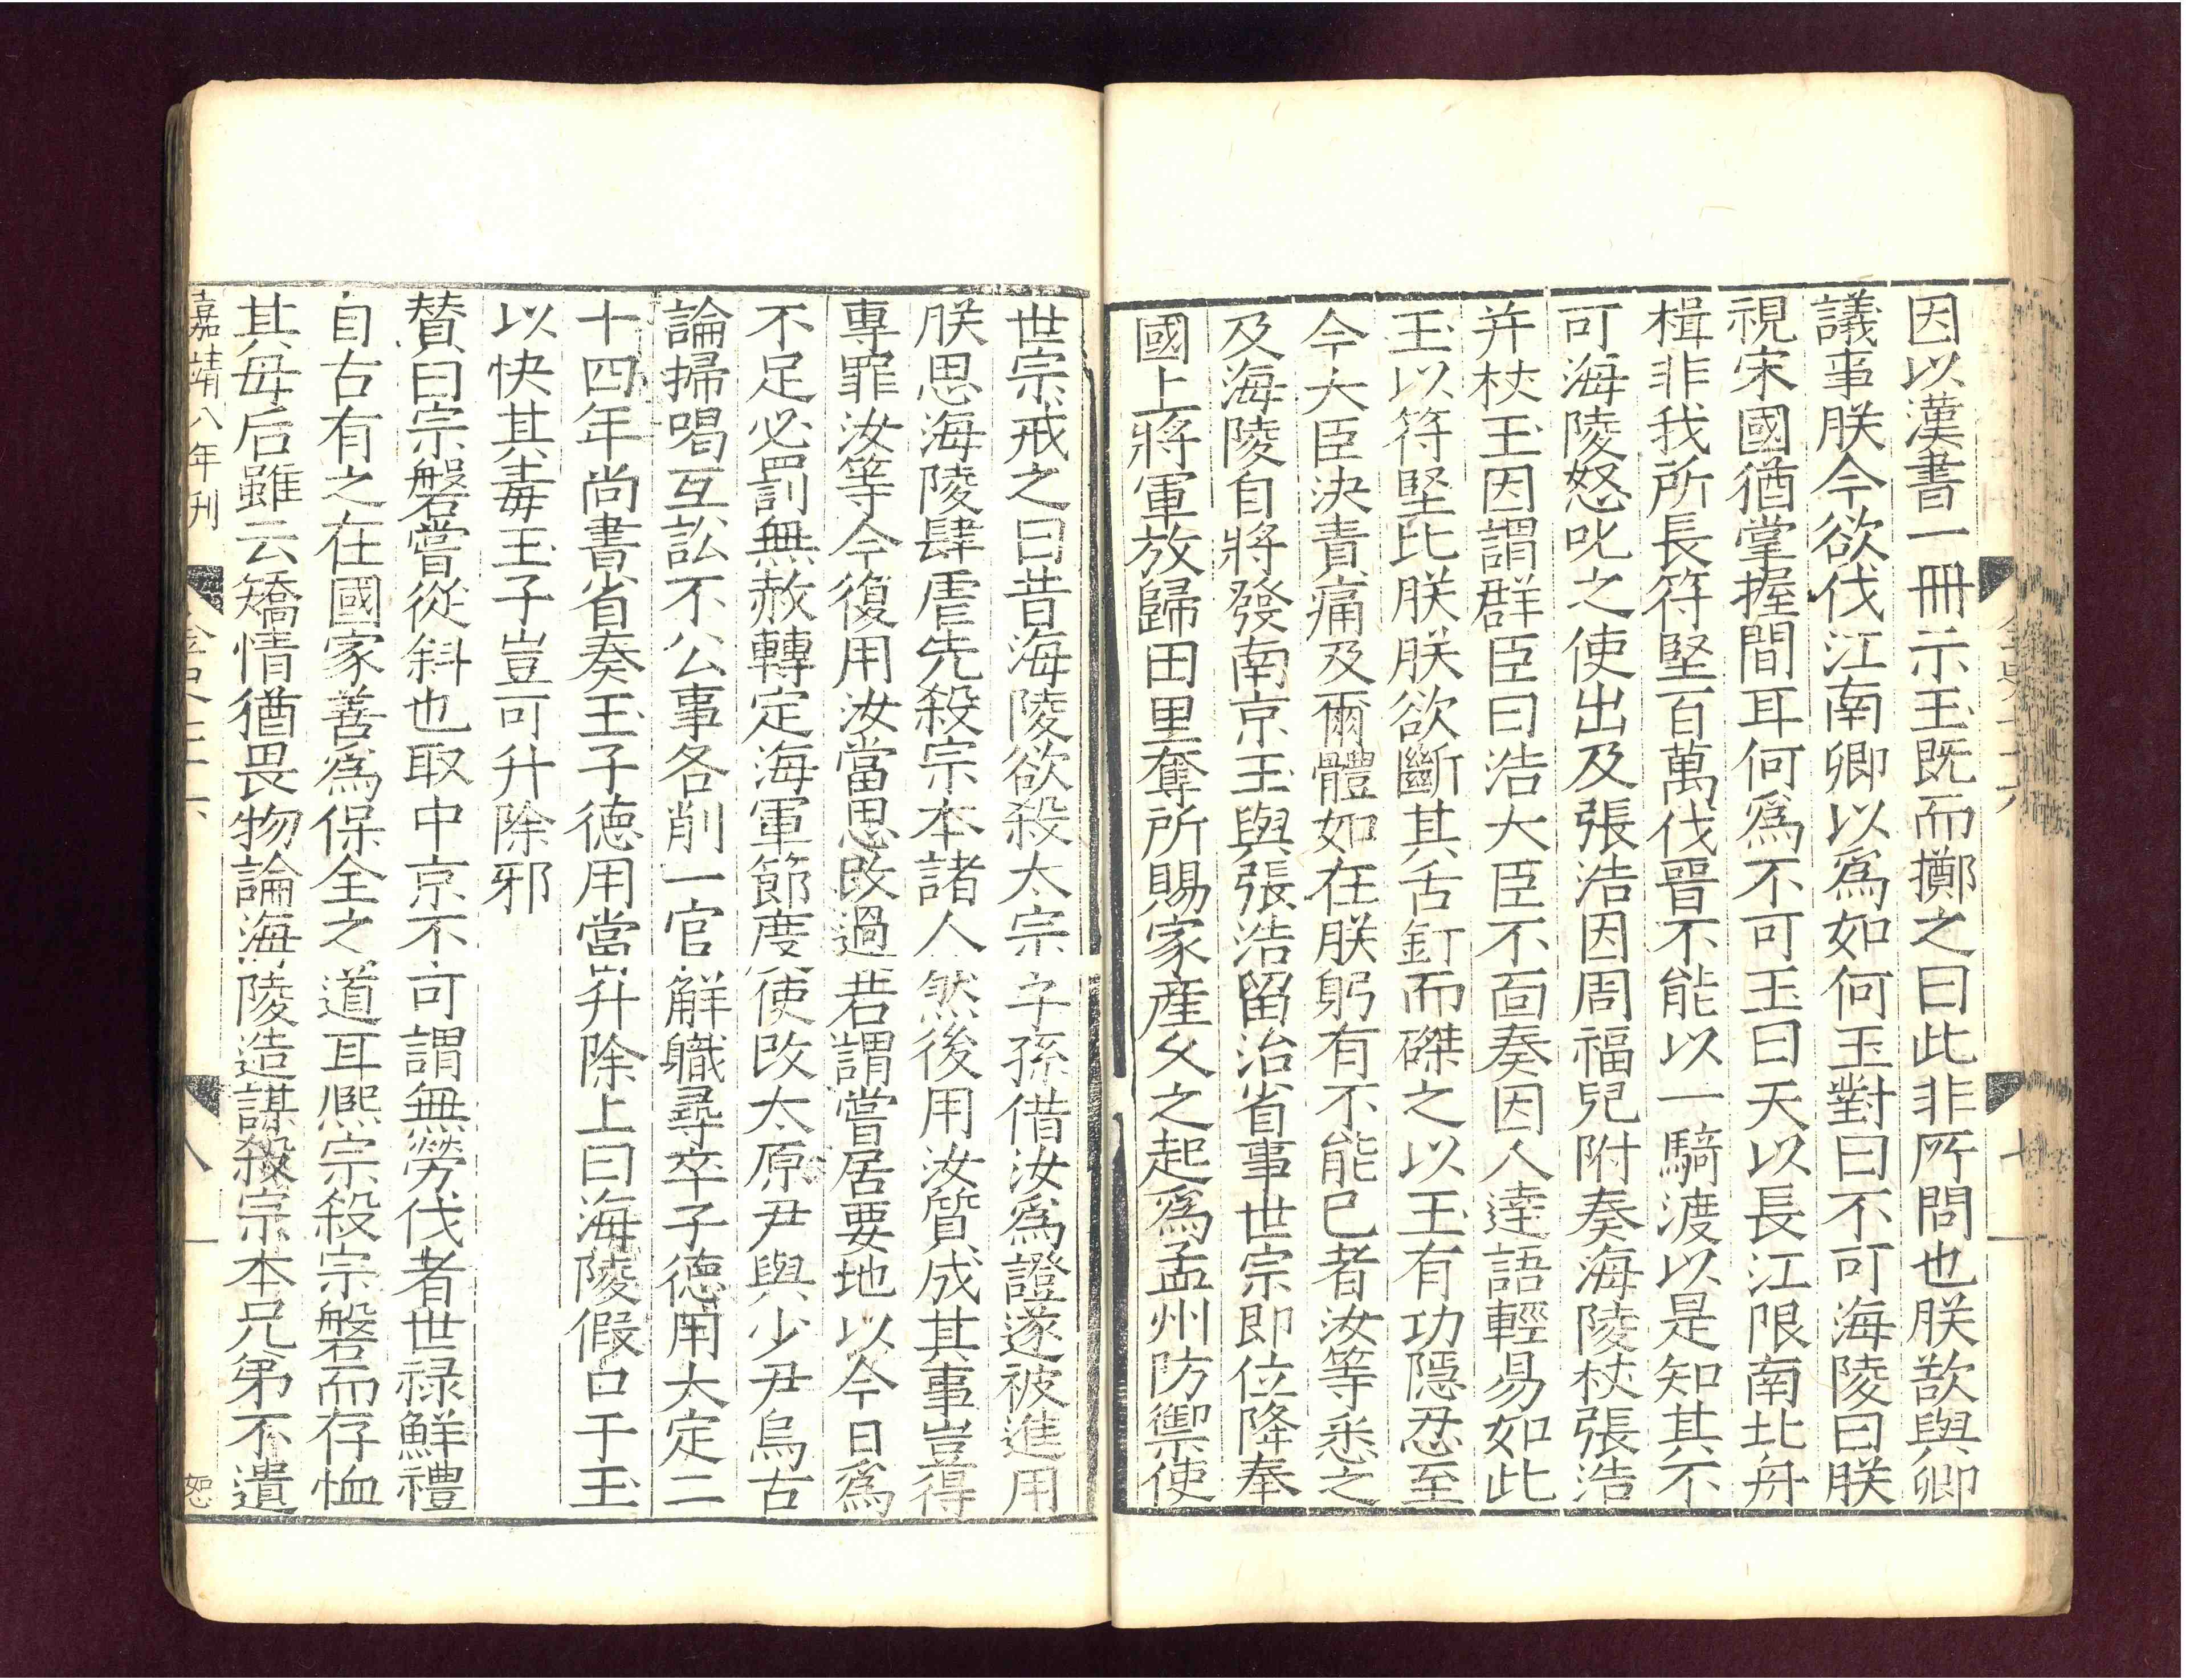 因以漢書一冊示玉既而擲之曰此非所問也朕欲與卿
議事朕今欲伐江南卿以爲如何玉對曰不可海陵曰朕
視宋國猶掌握間耳何爲不可玉曰天以長江限南北舟
楫非我所長符堅百萬伐晉不能以一騎渡以是知其不
可海陵怒叱之使出及張浩因周福兒附奏海陵杖張浩
并杖玉因謂群臣曰浩大臣不面奏因人達語輕易如此
玉以符堅比朕朕欲斷其舌釘而磔之以玉有功隱忍至
今大臣決責痛及爾體如在朕躬有不能已者汝等悉之
及海陵自將發南京玉與張浩留治省事世宗即位降奉
國上將軍放歸田里奪所賜家産久之起爲孟州防禦使
世宗戒之曰昔海陵欲殺太宗子孫借汝爲證遂被進用
朕思海陵肆虐先殺宗本諸人然後用汝質成其事豈得
專罪汝等今復用汝當思改過若謂嘗居要地以今日爲
不足必罰無赦轉定海軍節度使改太原尹與少尹烏古
論掃喝互訟不公事各削一官解職尋卒子德用大定二
十四年尚書省奏玉子德用當升除上曰海陵假口于玉
以快其毒玉子豈可升除邪
賛曰宗磐嘗從斜也取中京不可謂無勞伐者世祿鮮禮
自古有之在國家善爲保全之道耳熙宗殺宗磐而存恤
其母后雖云矯情猶畏物論海陵造謀殺宗本兄弟不遺
嘉靖八年刊
八
恕